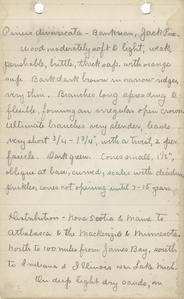 Pinus divaricata - Banksian, Jack Pine.
Wood moderately soft & light, weak,
perishable, brittle, thick sap, with orange
sap. Bark dark brown in narrow ridges
very thin. Branches long spreading &
flexible, forming an irregular open crown.
Ultimate branches very slender, leaves
very short 3/4 - 1 3/4", with a twist, 2 per
fascicle. Dark green. Cones small, 1 1/2",
oblique at base, curved, scales with deciduous
prickles, cones not opening until 7-15 years.
Distribution - Nova Scotia & Maine to
Athabasca & the Mackenzie & Minnesota,
North to 100 miles from James Bay, south
to Indiana & Illinois near Lake Mich.
On deep light dry sands, on